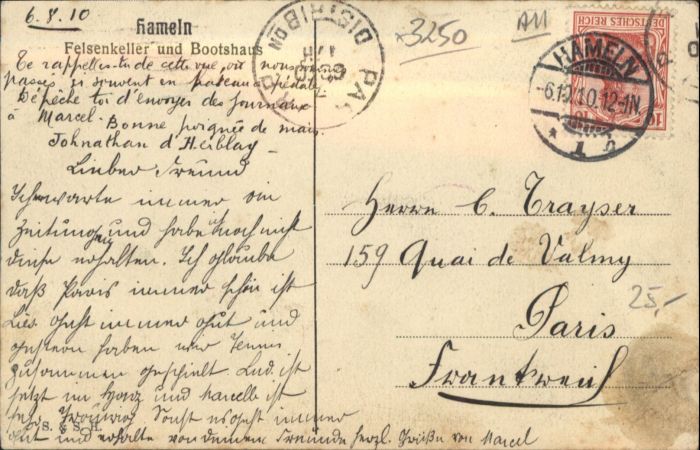 6.8.10
Hameln
Felsenkeller und Bootshaus
Te rappelles-tu de cette vue où nous sommes
passés si souvent en bateau
Dépêche toi d'envoyer des journaux
à Marcel. Bonne poignée de main
Johnathan d'Herblay
Lieber Freund
Ich warte immer die
Zeitungen und habe noch nicht
diese erhalten. Ich glaube
daß Paris immer schön ist
immer gut und
gestern haben wir Tennis
zusammen gespielt. Lud. ist
jetzt im Harz und Marcelle ist
Sonst es geht immer
gut und erhalte von deinem Freunde herzl. Grüße von Marcel
S. & S. H.
*3250
A11
DEUTSCHES REICH
10
HAMELN
-6.10.10.12-1N
* 1 b
PARIS
DISTRIBON
Herrn C. Trayser
159 Quai de Valmy
Paris
Frankreich
25,-